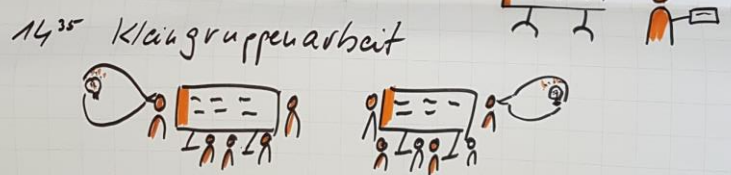 14³⁵ Kleingruppenarbeit